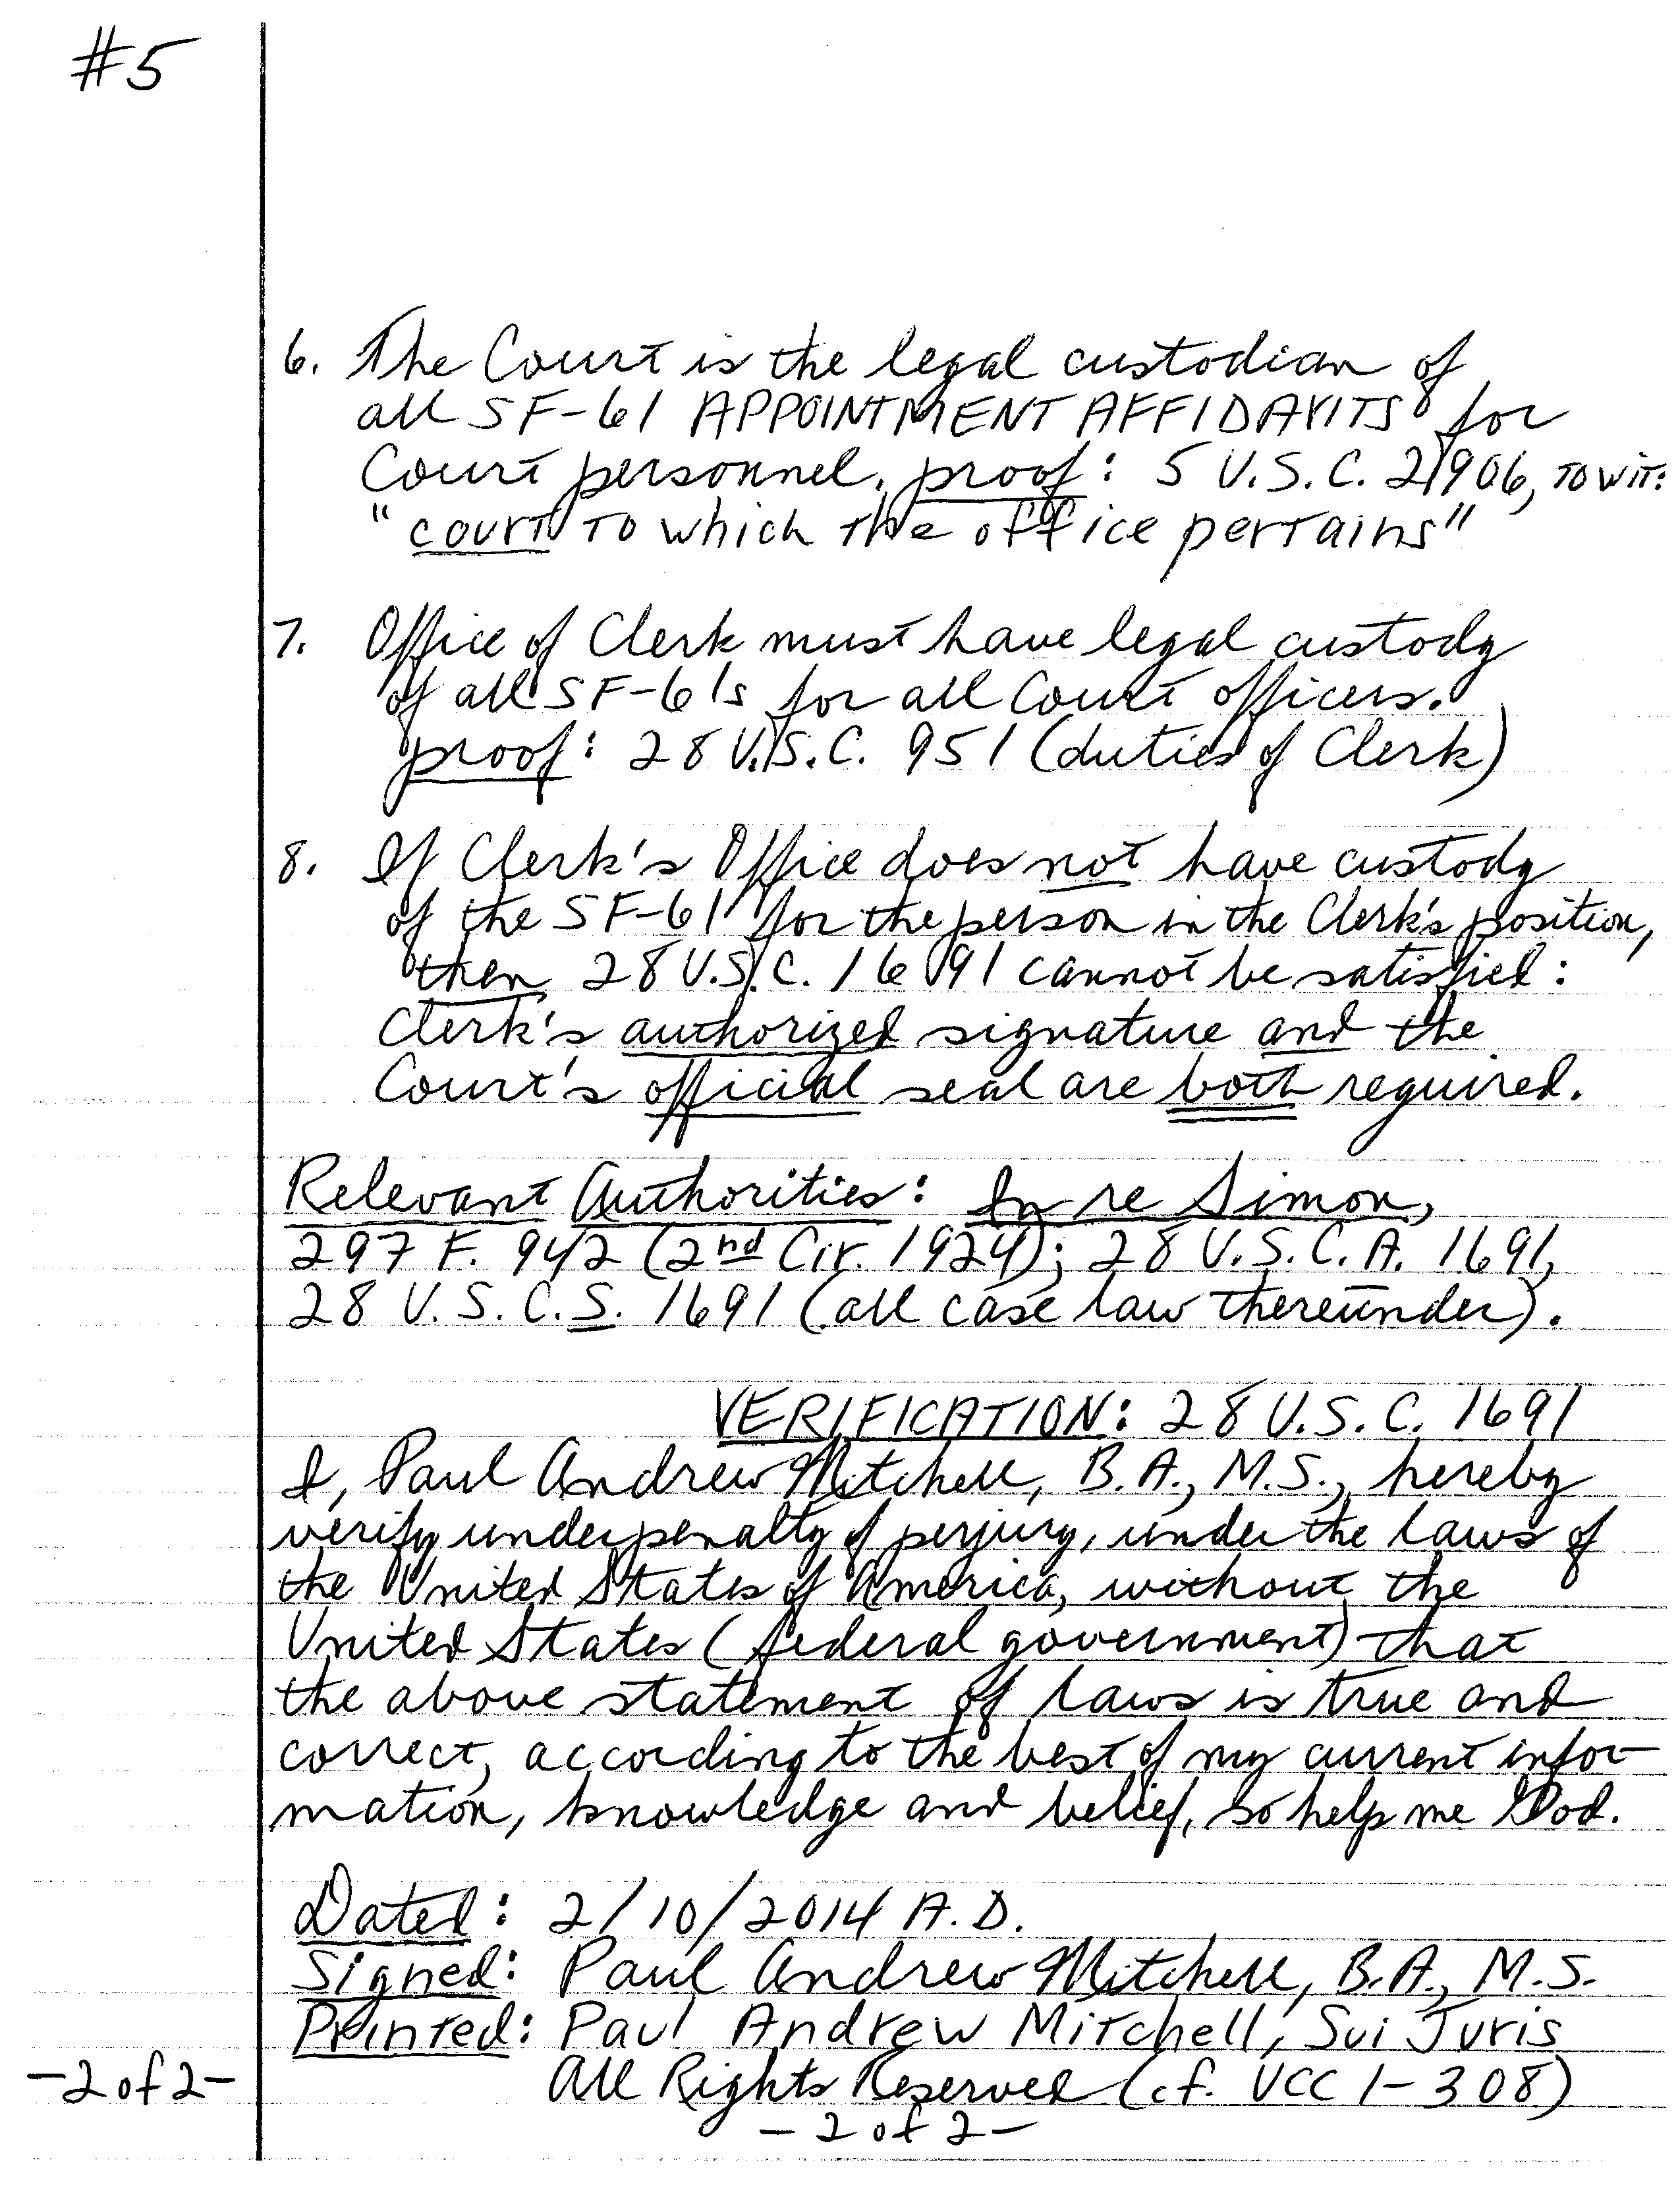 #5
6. The Court is the legal custodian of
all SF-61 APPOINTMENT AFFIDAVITS for
Court personnel, proof: 5 U.S.C. 2906, TO WIT:
"court TO which the office pertains"
7. Office of Clerk must have legal custody
of all SF-61s for all Court officers.
proof: 28 U.S.C. 951 (duties of Clerk)
8. If Clerk's Office does not have custody
of the SF-61 for the person in the Clerk's position,
then 28 U.S.C. 1691 cannot be satisfied:
Clerk's authorized signature and the
Court's official seal are both required.
Relevant Authorities: In re Simon,
297 F. 942 (2nd Cir. 1924); 28 U.S.C.A. 1691,
28 U.S.C.S. 1691 (all case law thereunder).
VERIFICATION: 28 U.S.C. 1691
I, Paul Andrew Mitchell, B.A., M.S., hereby
verify under penalty of perjury, under the laws of
the United States of America, without the
United States (federal government) that
the above statement of laws is true and
correct, according to the best of my current infor-
mation, knowledge and belief, so help me God.
Dated: 2/10/2014 A.D.
Signed: Paul Andrew Mitchell, B.A., M.S.
Printed: Paul Andrew Mitchell, Sui Juris
All Rights Reserved (cf. UCC 1-308)
-2 of 2-
-2 of 2-